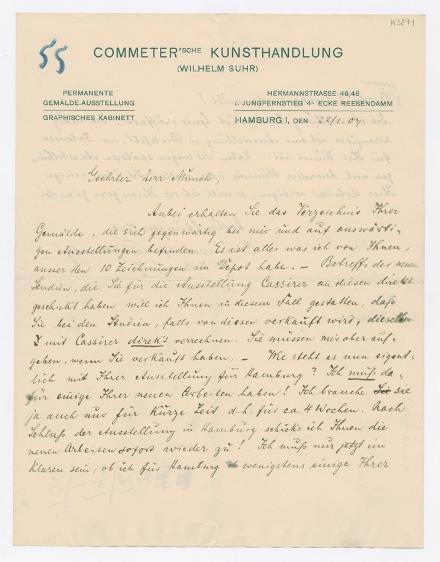 K3271
55
COMMETER'SCHE KUNSTHANDLUNG
(WILHELM SUHR)
PERMANENTE
GEMÄLDE-AUSSTELLUNG
GRAPHISCHES KABINETT
HERMANNSTRASSE 46/48
JUNGFERNSTIEG ECKE REESENDAMM
HAMBURG I, DEN 22/1. 07
Geehrter Herr Munch,
Anbei erhalten Sie das Verzeichnis Ihrer
Gemälde, die sich gegenwärtig bei mir und auf auswärti-
gen Ausstellungen befinden. Es ist alles was ich von Ihnen,
ausser den 10 Zeichnungen im Depot habe. – Betreffs der neuen
Studien, die Sie für die Ausstellung Cassirer an diesen direkt
geschickt haben will ich Ihnen in diesem Fall gestatten, daß
Sie bei den Studien, falls von diesen verkauft wird, dieselben
mit Cassirer direkt verrechnen. Sie müssen mir aber auf-
geben, wenn Sie verkauft haben. – Wie steht es nun eigent-
lich mit Ihrer Ausstellung für Hamburg? Ich muß da-
für einige Ihrer neuen Arbeiten haben! Ich brauche sie
ja auch nur für kurze Zeit d.h. für ca 4 Wochen. Nach
Schluß der Ausstellung in Hamburg schicke ich Ihnen die
neuen Arbeiten sofort wieder zu! Ich muß nur jetzt im
klaren sein, ob ich für Hamburg wenigstens einige Ihrer